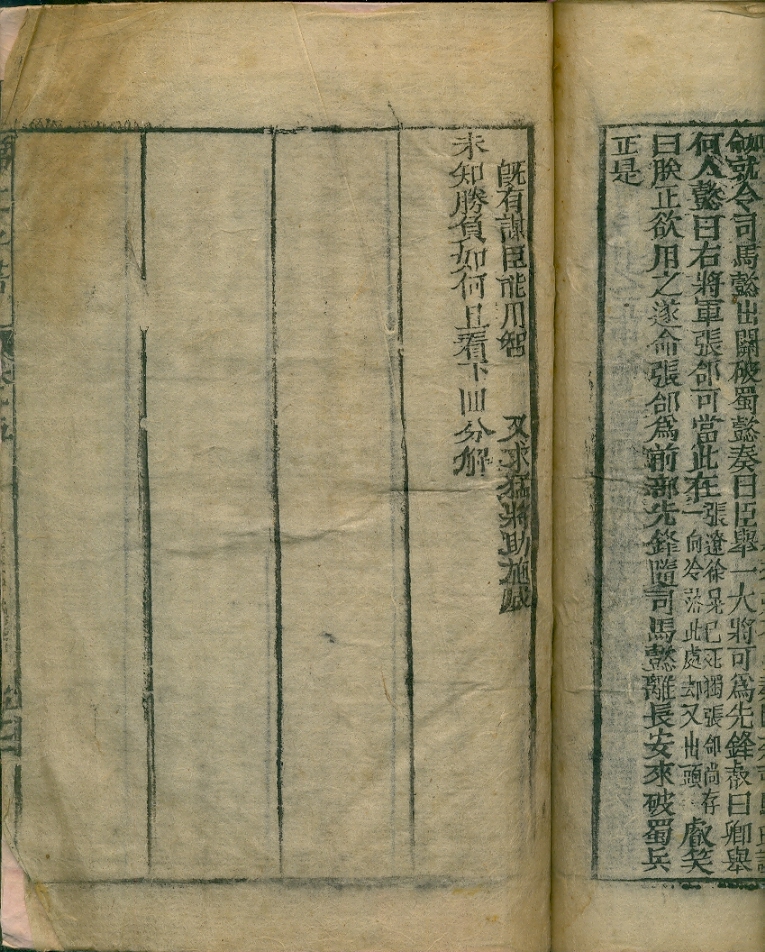 勑就令司馬懿出關破蜀懿奏曰臣舉一大將可爲先鋒叡曰卿舉
何人懿曰右將軍張郃可當此任張遼徐晃已死獨張郃尚存一向冷落此處却又出頭叡笑
曰朕正欲用之遂命張郃爲前部先鋒隨司馬懿離長安來破蜀兵
正是
旣有謀臣能用智 又求猛將助施威
未知勝負如何且看下回分解